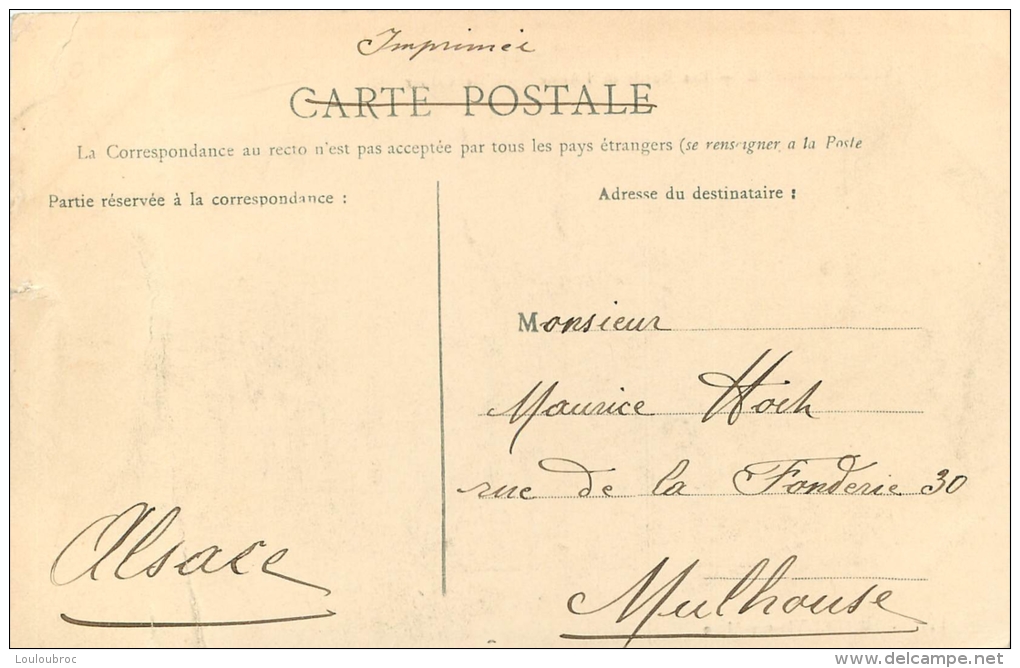 Imprimée
CARTE POSTALE
La Correspondance au recto n'est pas acceptée par tous les pays étrangers (se renseigner a la Poste
Partie réservée à la correspondance :
Adresse du destinataire :
Monsieur
Maurice Hoch
rue de la Fonderie 30
Alsace
Mulhouse
Louloubroc
http://www.delcampe.net